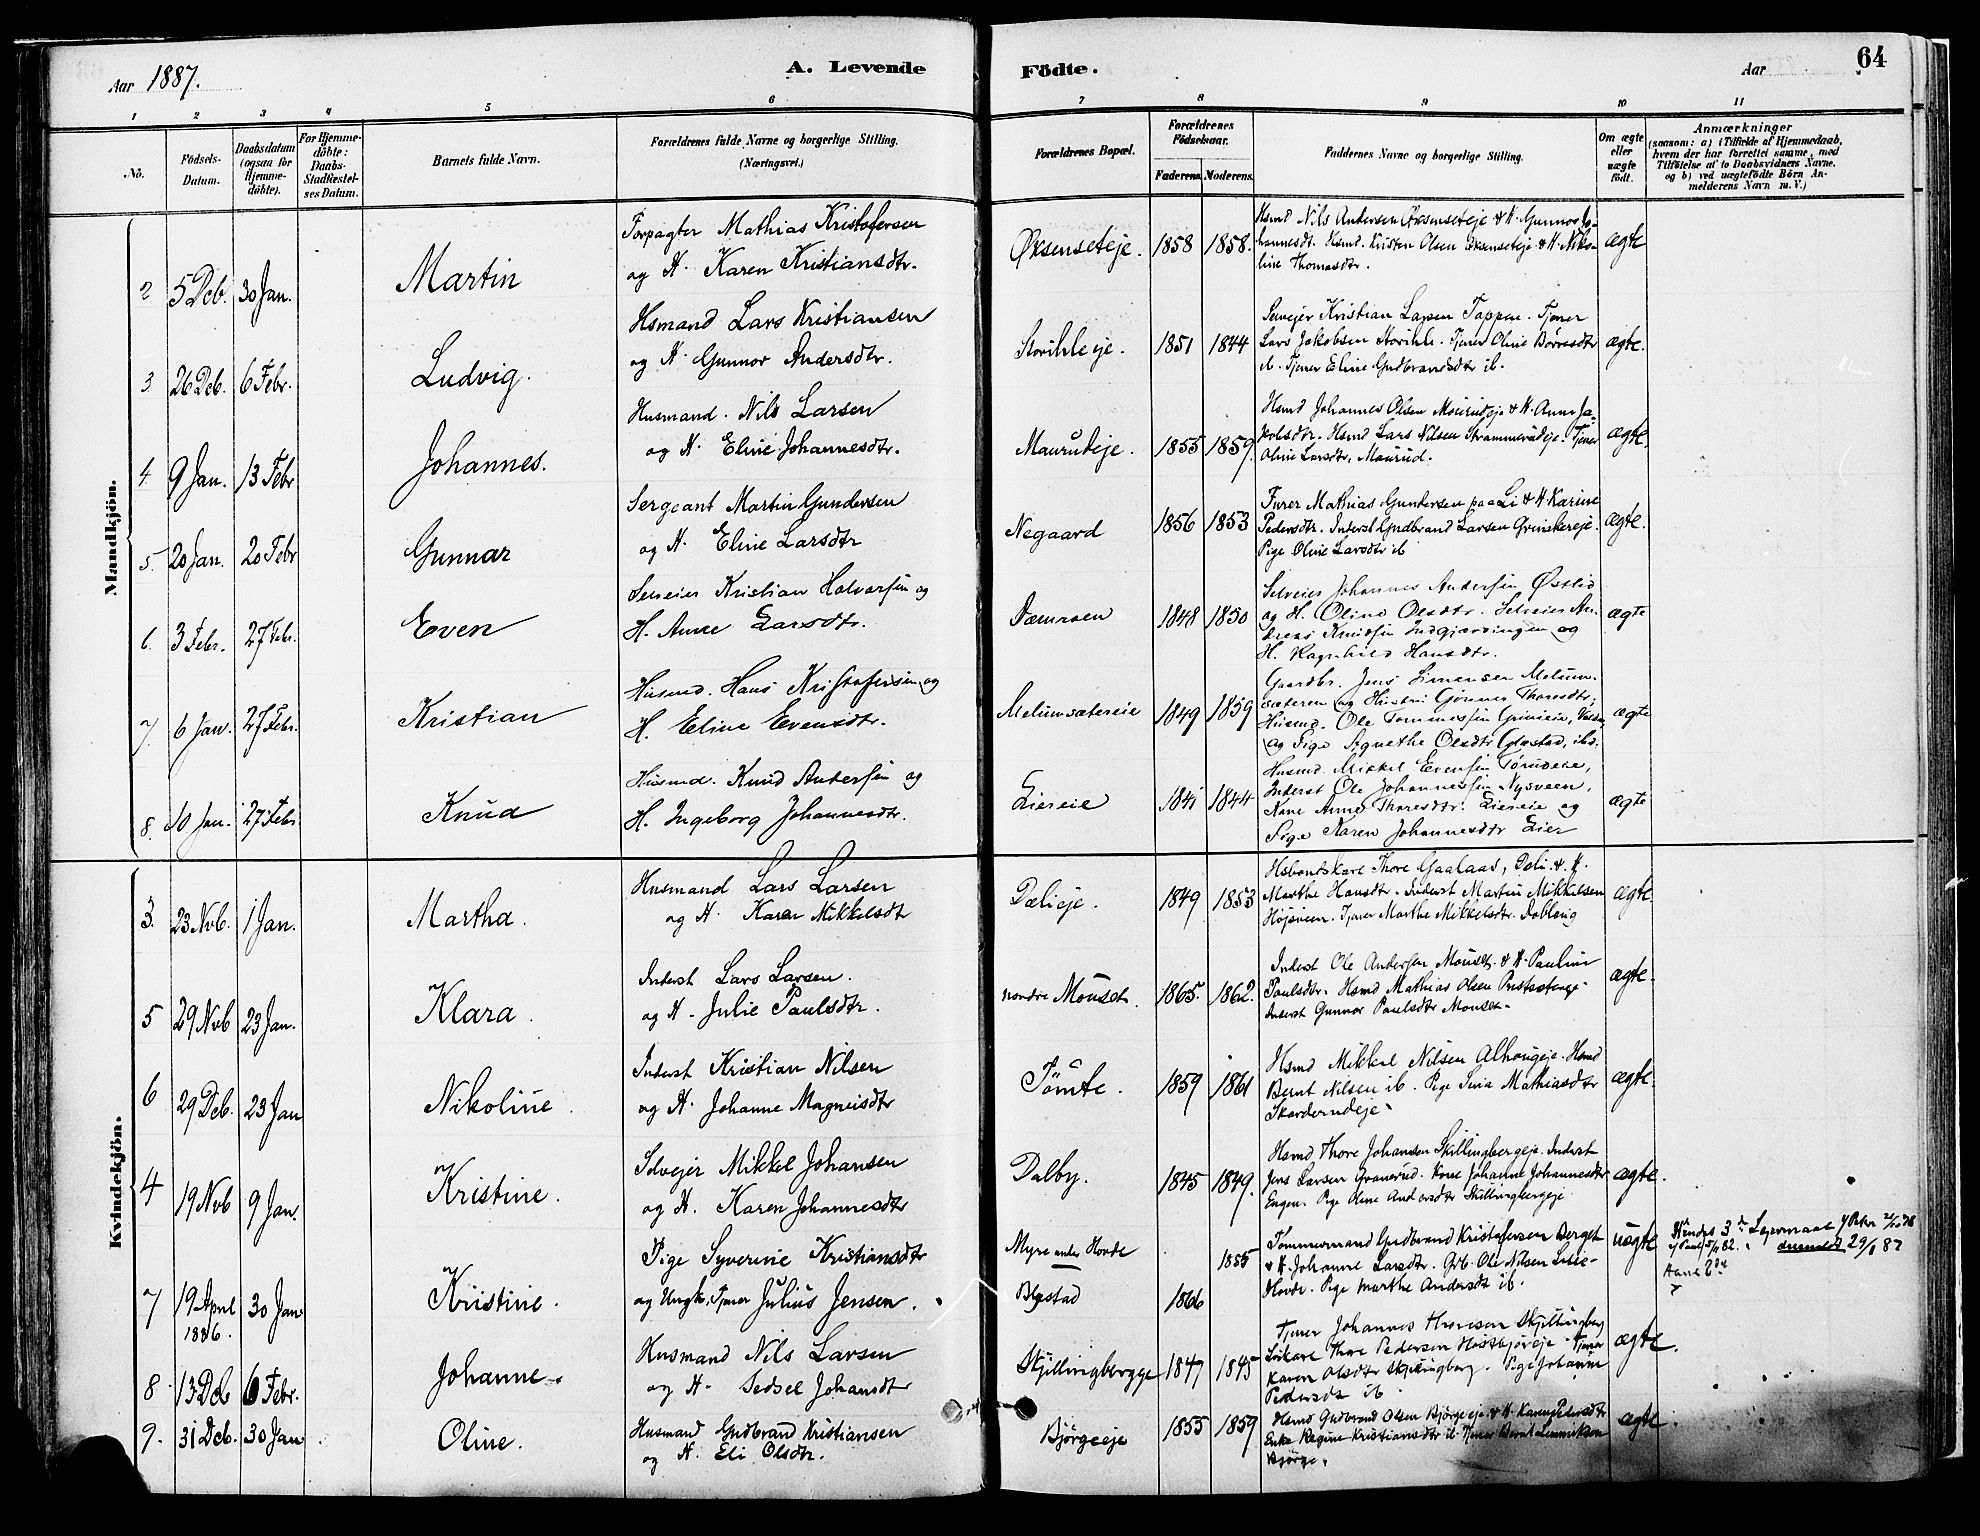 Aar 1887.
A. Levende Födte.
Aar
64
1 2 3 4 5 6 7 8 9 10 11
No.
Födsels-Datum.
Daabsdatum (ogsaa for Hjemme-döbte).
For Hjemme-döbte: Daabs-Stadfæstel-ses Datum.
Barnets fulde Navn.
Forældrenes fulde Navne og borgerlige Stilling. (Næringsvei.)
Forældrenes Bopæl.
Forældrenes Födselsaar.
Faderens. Moderens.
Faddernes Navne og borgerlige Stilling.
Om ægte eller uægte födt.
Anmærkninger
(saasom: a) i Tilfælde af Hjemmedaab,
hvem der har forrettet samme, med
Tilföielse af to Daabsvidners Navne,
og b) ved uægtefödte Börn An-
melderens Navn m. V.)
Mandkjön.
2 5 Deb. 30 Jan. Martin
Forpagter Mathias Kristofersen
og H. Karen Kristiansdtr.
Øksenseteje. 1858 1858.
Hsmd Nils Andersen Øksenseteje & H. Gunnor Jo-
hannesdt. Hsmd. Kristen Olsen Øksenseteje & H. Niko-
line Thomasdtr.
ægte
3. 26 Deb. 6 Febr. Ludvig.
Hsmand Lars Kristiansen
og H. Gunnor Andersdtr.
Storihleeje. 1851 1844
Selvejer Kristian Larsen Tappen. Tjener
Lars Jakobsen Storihle. Tjener Oline Børresdtr
ib. Tjener Eline Gudbrandsdtr ib.
ægte.
4 9 Jan. 13 Febr Johannes.
Husmand. Nils Larsen
og H. Eline Johannesdtr.
Maurudeje. 1855 1859.
Hsmd Johannes Olsen Maurudeje & H. Anne Ja-
kobsdtr. Hsmd Lars Nilsen Strammerudeje. Tjener
Oline Larsdtr, Maurud.
ægte.
5. 20 Jan. 20 Febr Gunnar
Sergeant Martin Gundersen
og H. Eline Larsdtr
Negaard 1856 1853
Furer Mathias Gundersen paa Li & H. Karine
Pedersdtr. Inderst Gudbrand Larsen
Pige Oline Larsdtr ib
ægte.
6. 3 Febr. 27 Febr. Even
Selveier Kristian Halvorsen og
H. Anne Larsdtr.
1848 1850
Selveier Johannes Andersen Østlid
og H. Oline Olsdtr. Selveier An-
dreas Knudsen Indgjærdingen og
H. Ragnhild Hansdtr.
ægte
7. 6 Jan. 27 Febr. Kristian
Husmd. Hans Kristofersen og
H. Eline Evensdtr.
Melumsætereie 1849 1859
Gaardbr. Jens Simensen Melum-
sæteren og Hustru Gunnor Thoresdtr,
Husmd. Ole Tommessen
og Pige Agnethe Olsdtr
ægte
8. 10 Jan. 27 Febr Knud
Husmd. Knud Andersen og
H. Ingeborg Johannesdtr.
Liereie 1841 1844
Husmd. Mikkel Evensen Torudeie,
Inderst Ole Johannessen Nysveen,
Kone Anne Thoresdtr. Liereie og
Pige Karen Johannesdtr Lier
ægte
Kvindekjön.
3. 23 Nvb. 1 Jan. Martha.
Husmand Lars Larsen
og H. Karen Mikkelsdtr
Dælieje. 1849 1853
Hsbondskare Thore Gaalaas, Dæli & H.
Marthe Hansdtr. Inderst Martin Mikkelsen
Højsveen. Tjener Marthe Mikkelsdtr. Dobloug
ægte.
5 29 Nvb 23 Jan. Klara.
Inderst Lars Larsen.
og H. Julie Paulsdtr.
nordre Mouset. 1865. 1862.
Inderst Ole Andersen Mouset. & H. Pauline
Paulsdtr. Hsmd Mathias Olsen
Inderst Gunnor Paulsdtr Mouset.
ægte.
6 29 Deb. 23 Jan Nikoline.
Inderst Kristian Nilsen
og H. Johanne Magneisdtr
Tömte. 1859 1861
Hsmd Mikkel Nilsen Alhougeje. Hsmd
Bernt Nilsen ib. Pige Sina Mathiasdtr
Skarderudeje.
ægte.
4 19 Nvb 9 Jan. Kristine.
Selvejer Mikkel Johansen
og H. Karen Johannesdtr
Dalby. 1845 1849.
Hsmd Thore Johansen Skillingbergeje. Inderst
Jens Larsen Granerud. Kone Johanne Johannesdtr
Engen. Pige Oline Andersdtr Skillingbergeje
ægte.
7 19 April 1886. 30 Jan Kristine.
Pige Syverine Kristiansdtr
og Ungk. Tjener Julius Jensen.
Myre under Hovde 1855
Blystad 1866
Tömmermand Gudbrand Kristofersen Berget
& H. Johanne Larsdtr. Grb. Ole Nilsen Lille-
Hovde. Pige Marthe Andersdt ib.
uægte
Hendes 3die Leiermaal
anmeldt 29/1 87
Hans 2det
8 13 Deb 6 Febr. Johanne.
Husmand Nils Larsen
og H. Sedsel Johansdtr
Skjillingbergeje 1847 1845
Tjener Johannes Thoresen Skjillingberg
Thore Pedersen Tjener
Karen Olsdtr Skjillingberg. Pige Johanne
Pedersdt ib.
ægte.
9. 31 Deb. 30 Jan Oline.
Husmand Gudbrand Kristiansen
og H. Eli Olsdtr.
Bjørgeeje 1855 1859
Hsmd Gudbrand Olsen Bjørgeeje & H. Karen Pedersdtr
Enke Regine Kristiansdtr ib. Tjener Bernt
Bjørge.
ægte.